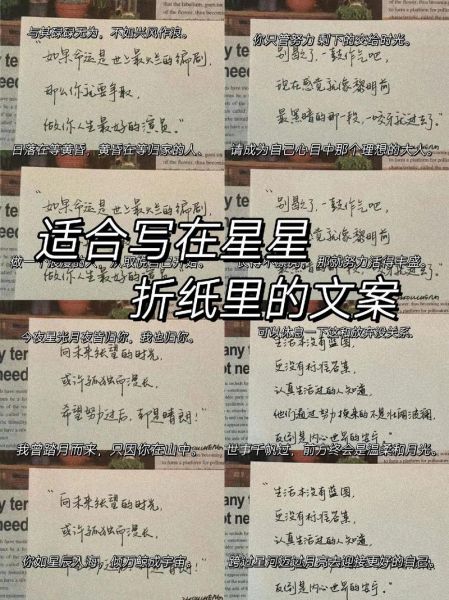 与其碌碌无为，不如兴风作浪。
"如果命运是世上最烂的编剧，
那么你就要争取，
做你人生最好的演员。"
日落在等黄昏，黄昏在等归家的人。
你只管努力 剩下的交给时光。
"别歇了，一鼓作气吧，
现在感觉就像黎明前
最黑暗的那一段，一咬牙就过去了。"
请成为自己心目中那个理想的大人。
"如果命运是世上最烂的编剧，
"别歇了，一鼓作气吧，
适合写在星星
折纸里的文案
那就努力活得丰盛。
今夜星光月夜皆归你，我也归你。
向未来张望的时光，
或许孤独而漫长，
希望努力过后，都是晴朗！"
我曾踏月而来，只因你在山中。
可以休息一下这和放弃没关系.
生活本没有蓝图，
更没有标准答案，
认真生活过的人知道，
他们通过努力换来的不是壮阔波澜，
反倒是内心世界的安宁
世事千帆过，前方终会是温柔和月光。
"向未来张望的时光，
或许孤独而漫长，
你如星辰入海，倾万鲸成宇宙
"生活本没有蓝图，
更没有标准答案，
认真生活过的人知道，
跨过星河迈过月亮去迎接更好的自己。
反倒是内心世界的安宁。"